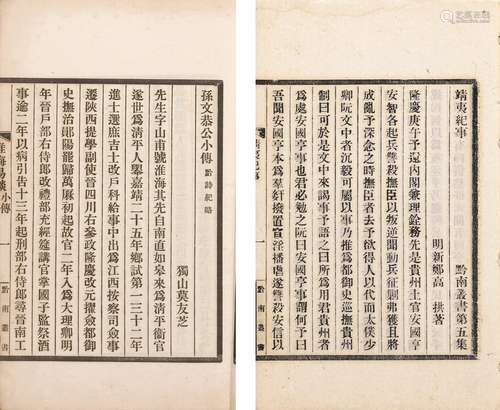 靖夷紀事　黔南叢書第五集
明新鄭高　拱著
隆慶庚午予還內閣兼理銓務先是貴州土官安國亨
安智各起兵讐殺撫臣以叛逆聞動兵征勦弗獲且將
成亂予深念之時撫臣者去予欲得人以代而太僕少
卿阮文中者沉毅可屬以事乃推爲都御史巡撫貴州
制曰可於是文中來謁事予語之曰所爲用君貴州者
爲處安國亨事也君必勉之阮曰安國亨事謂何予曰
吾聞安國亨本爲羣奸撥置淫播虐遂讐殺安信以
一
黔南叢書
孫文恭公小傳　黔詩紀略
獨山莫友芝
先生字山甫號淮海其先自南直如皋來爲清平衞官
遂世爲清平人舉嘉靖二十五年鄉試第一三十二年
進士選庶吉士改戶科給事中出爲江西按察司僉事
遷陝西提學副使晉四川右參政隆慶改元擢僉都御
史撫治鄖陽罷歸萬厤初起故官二年入爲大理卿明
年晉戶部右侍郎改禮部充經筵講官掌國子監祭酒
事逾二年以病引告十三年起刑部右侍郎尋晉南工
淮海易談小傳
一
黔南叢書